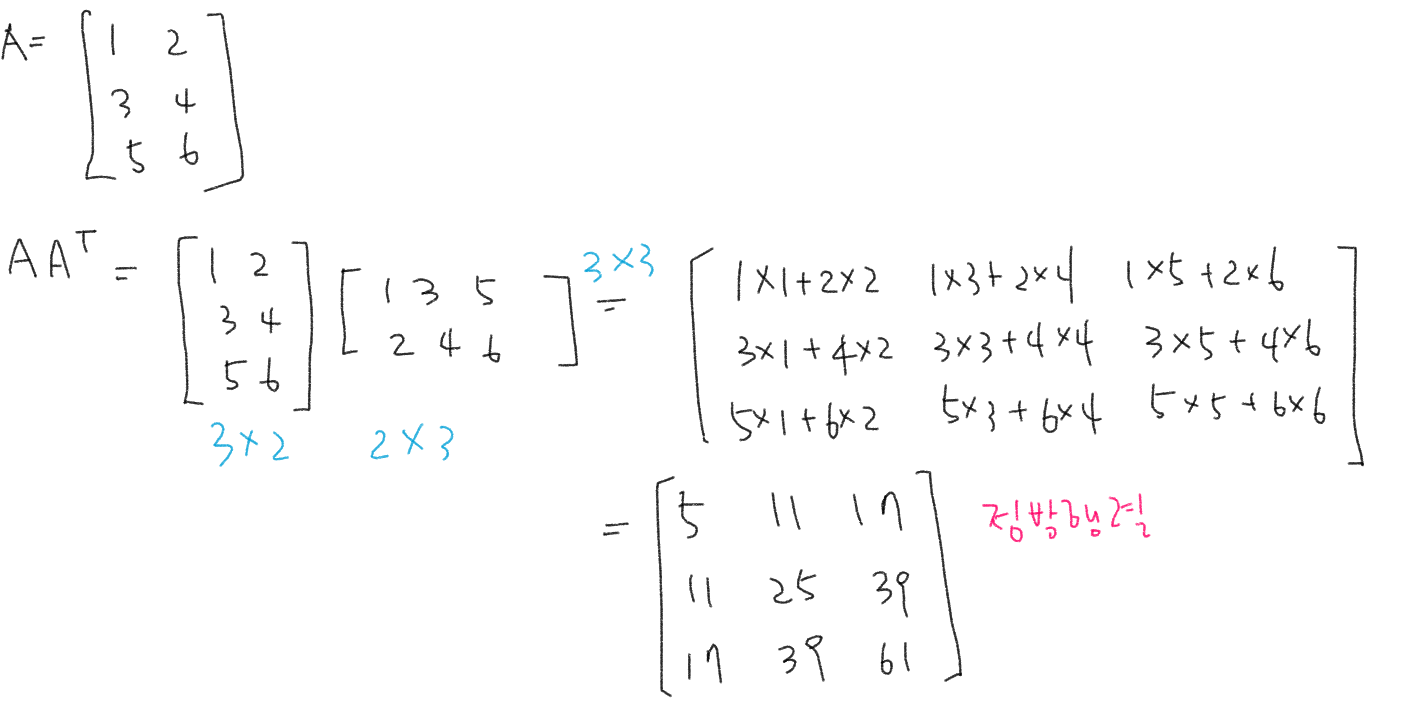 A= [ 1 2
3 4
5 6 ]
AAᵀ = [ 1 2
3 4
5 6 ] [ 1 3 5
2 4 6 ] = [ 1×1+2×2 1×3+2×4 1×5+2×6
3×1+4×2 3×3+4×4 3×5+4×6
5×1+6×2 5×3+6×4 5×5+6×6 ]
3×2 2×3 3×3
= [ 5 11 17
11 25 39
17 39 61 ]
정방행렬